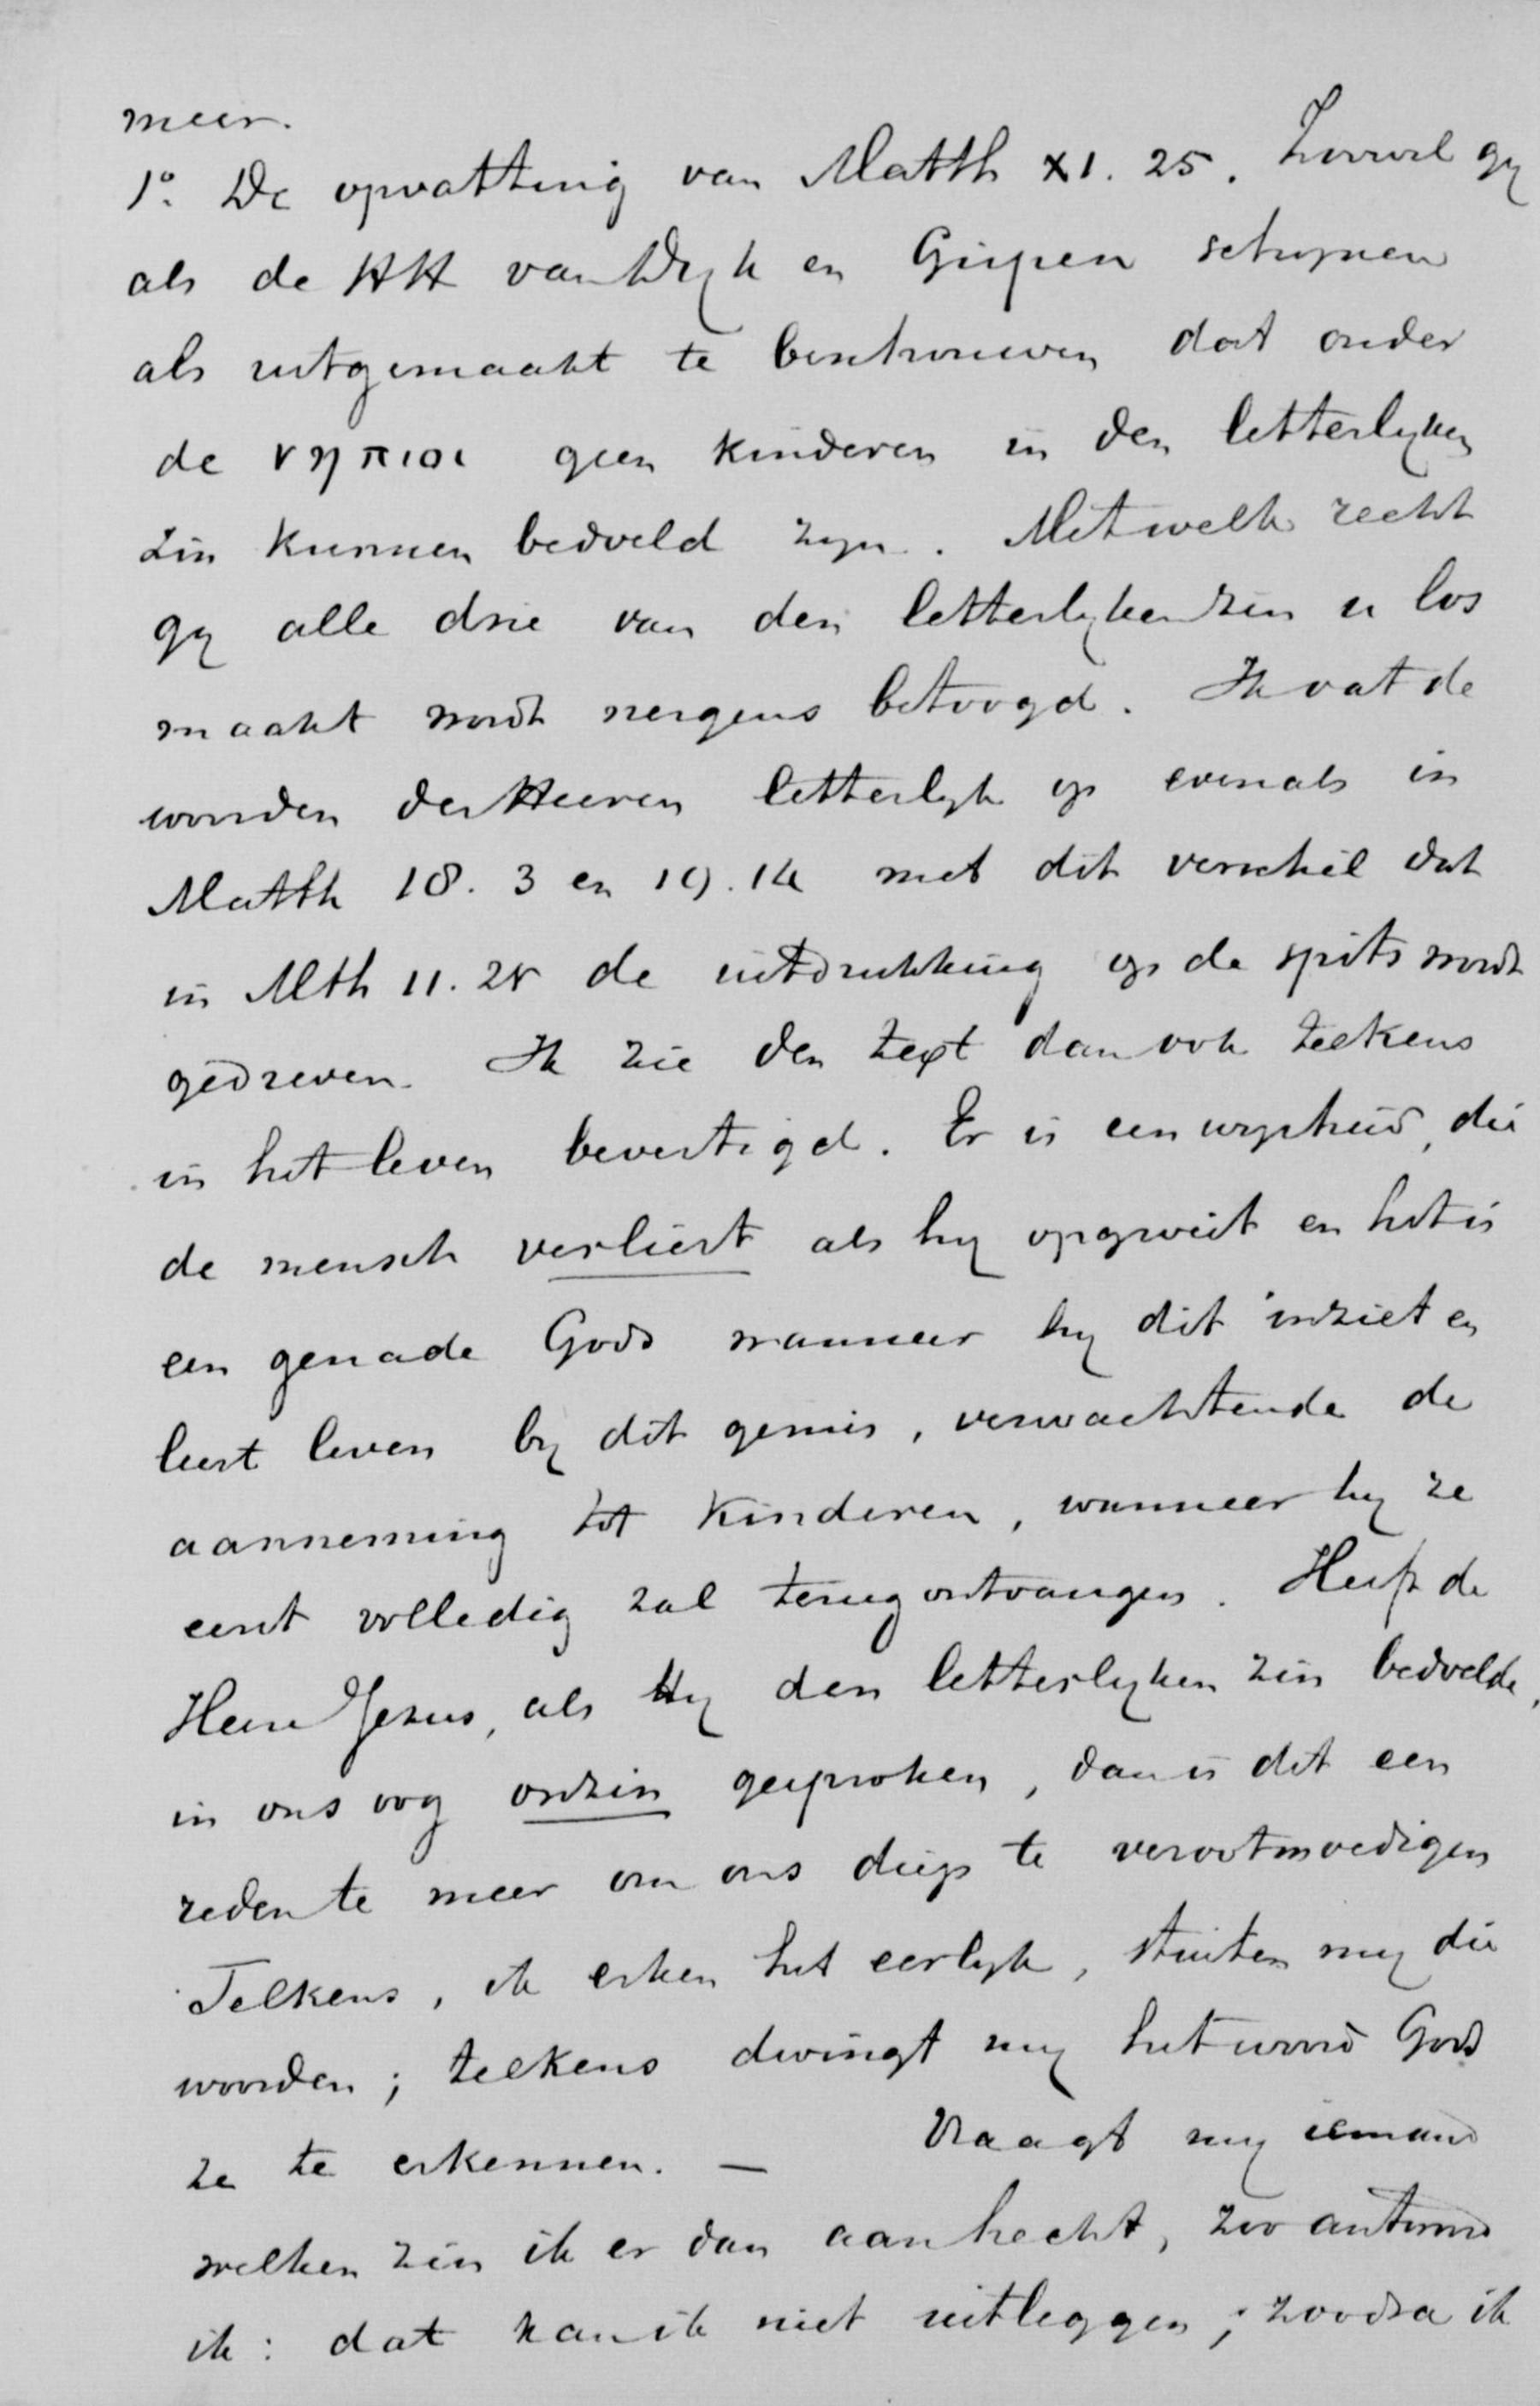 meer.
1o. De opvatting van Matth XI. 25. Zoowel gy
als de HH van Dyk en Gispen schynen
als uitgemaakt te beschouwen dat onder
de νηπιοι geen kinderen in den letterlyken
zin kunnen bedoeld zyn. Met welk recht
gy alle drie van den letterlyken zin u los
maakt wordt nergens betoogd. Ik vat de
woorden des Heeren letterlyk op evenals in
Matth 18. 3 en 19. 14 met dit verschil dat
in Mth 11. 25 de uitdrukking op de spits wordt
gedreven. Ik zie den text dan ook telkens
in het leven bevestigd. Er is een wysheid, die
de mensch verliest als hy opgroeit en het is
een genade Gods wanneer hy dit inziet en
leert leven by dit gemis, verwachtende de
aanneming tot kinderen, wanneer hy ze
eens volledig zal terug ontvangen. Heeft de
Heere Jezus, als Hy den letterlyken zin bedoelde,
in ons oog onzin gesproken, dan is dit een
reden te meer om ons diep te verootmoedigen
Telkens, ik erken het eerlyk, stuiten my die
woorden; telkens dwingt my het woord Gods
ze te erkennen. — Vraagt my iemand
welken zin ik er dan aan hecht, zoo antwoord
ik: dat kan ik niet uitleggen; zoodra ik